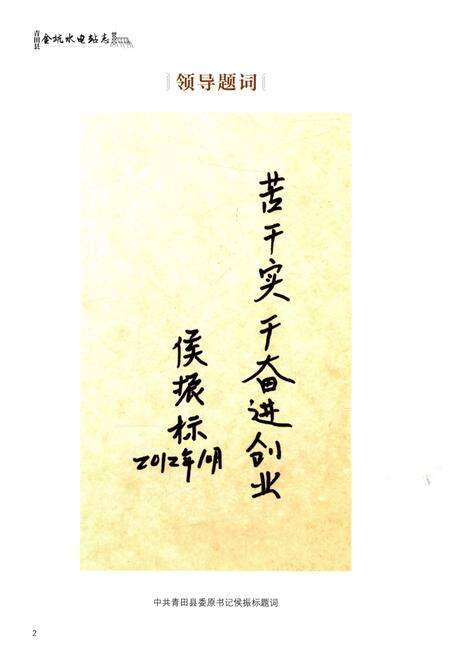 青田县
金坑水电站志
领导题词
苦干实干奋进创业
侯振标
2012年10月
中共青田县委原书记侯振标题词
2